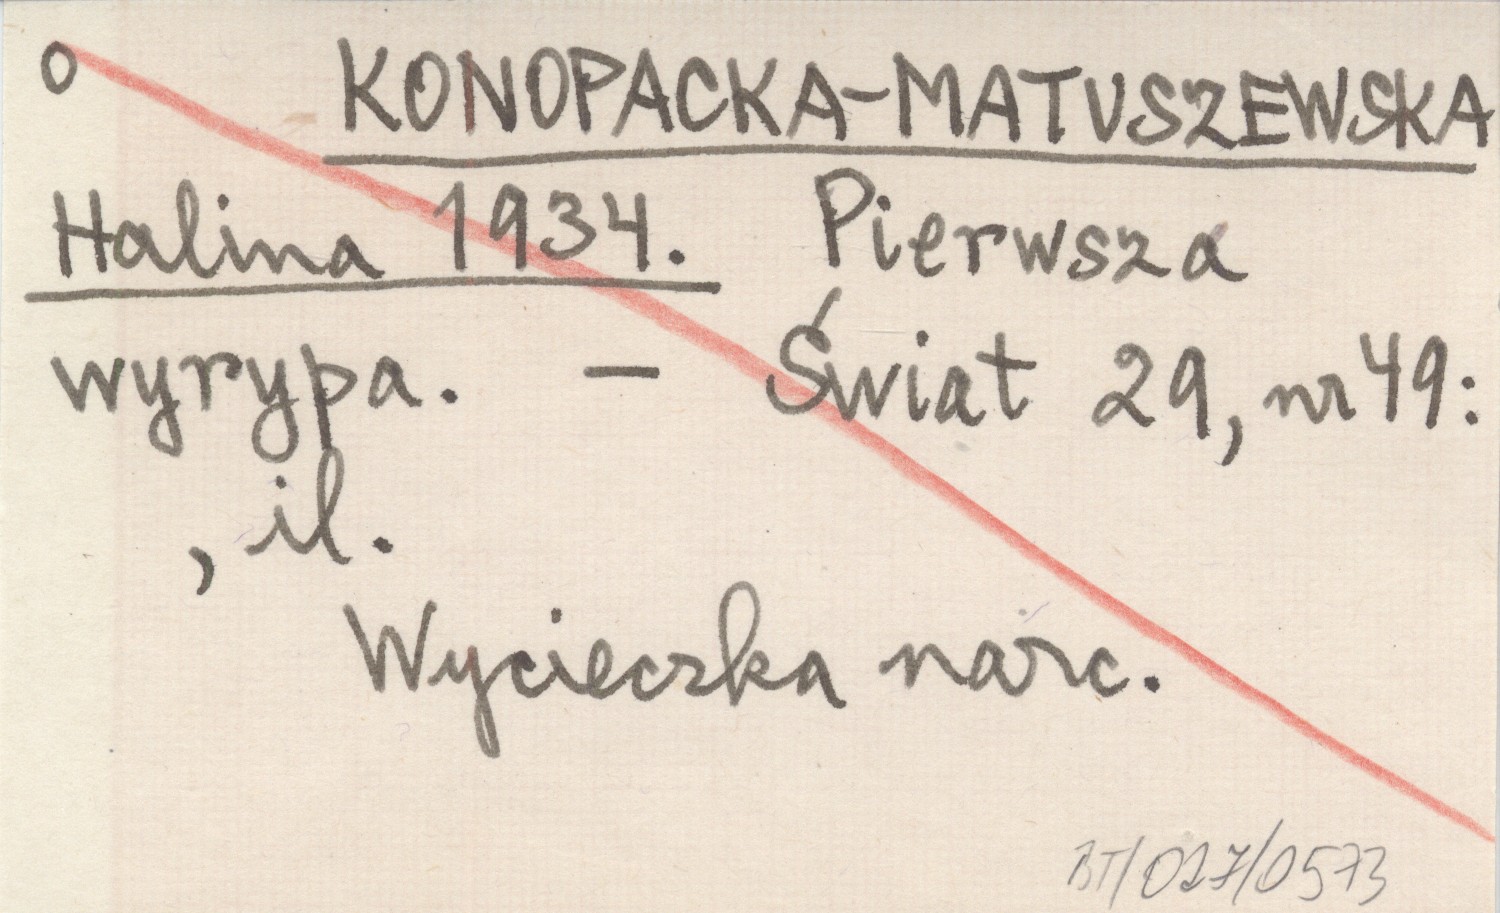 o KONOPACKA-MATUSZEWSKA
Halina 1934. Pierwsza
wyrypa. – Świat 29, nr 49:
, il.
Wycieczka narc.
BT/027/0573